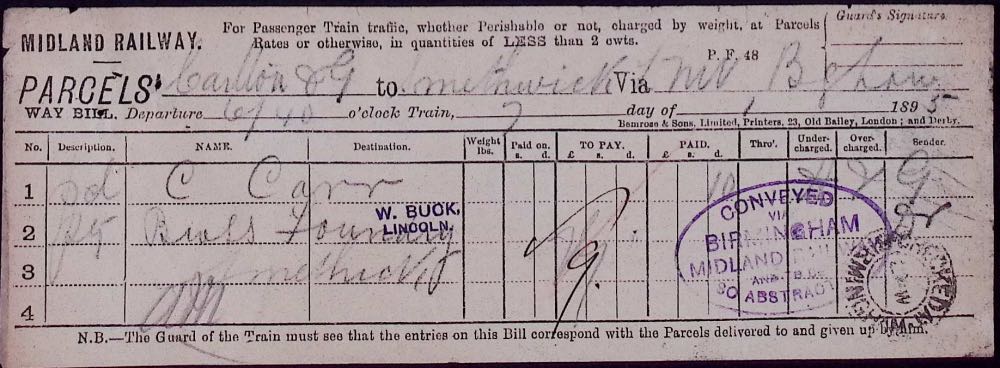 For Passenger Train traffic, whether Perishable or not, charged by weight, at Parcels
Rates or otherwise, in quantities of LESS than 2 cwts.
Guard's Signature.
MIDLAND RAILWAY.
P. F. 48
PARCELS' Carlton & to Smethwick Via Mid B'ham
WAY BILL. Departure 6/40 o'clock Train, 7 day of 1 1895
Bemrose & Sons, Limited, Printers, 23, Old Bailey, London; and Derby.
No. Description. NAME. Destination. Weight lbs. Paid on. s. d. TO PAY. £ s. d. PAID. £ s. d. Thro'. Under-charged. Over-charged. Sender.
1 pd C Carr 10
2 Foundry
3 Smethwick
4
W. BUCK,
LINCOLN.
CONVEYED
VIA
BIRMINGHAM
MIDLAND
AND
SO ABSTRACT
N.B.—The Guard of the Train must see that the entries on this Bill correspond with the Parcels delivered to and given up by him.